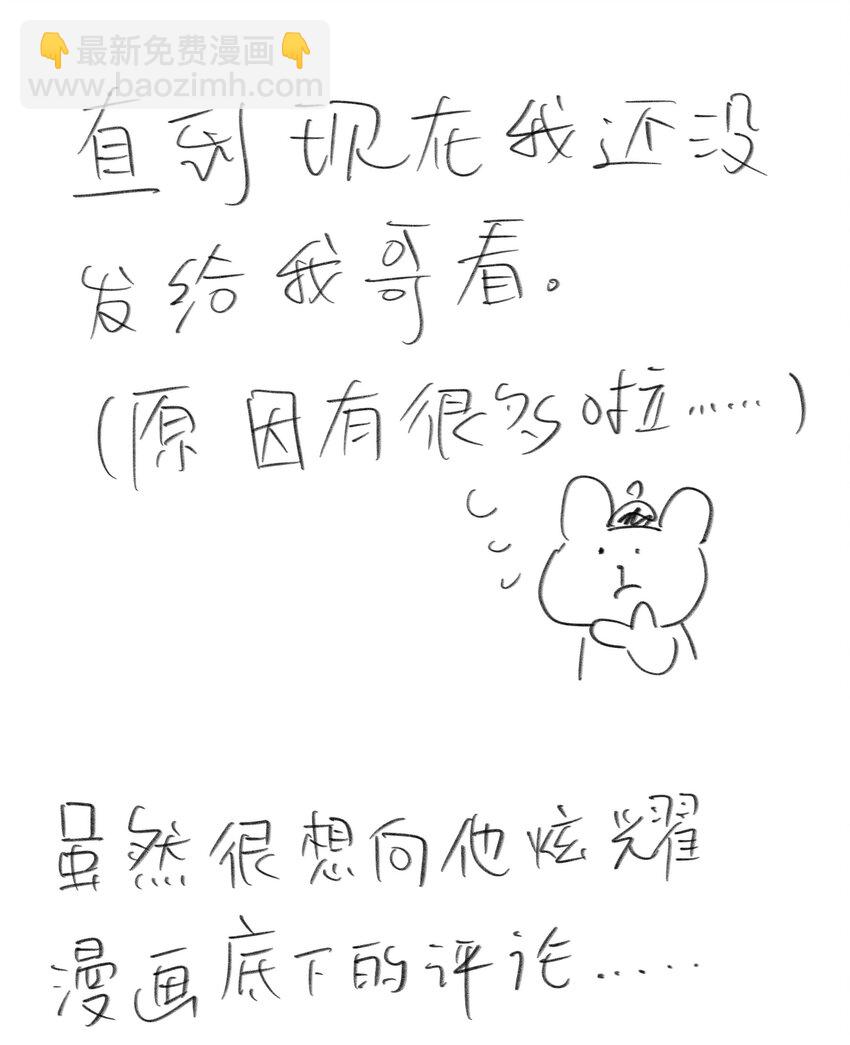 👇最新免费漫画👇
www.baozimh.com
直到现在我还没
发给我哥看。
(原因有很多啦……)
虽然很想向他炫耀
漫画底下的评论……